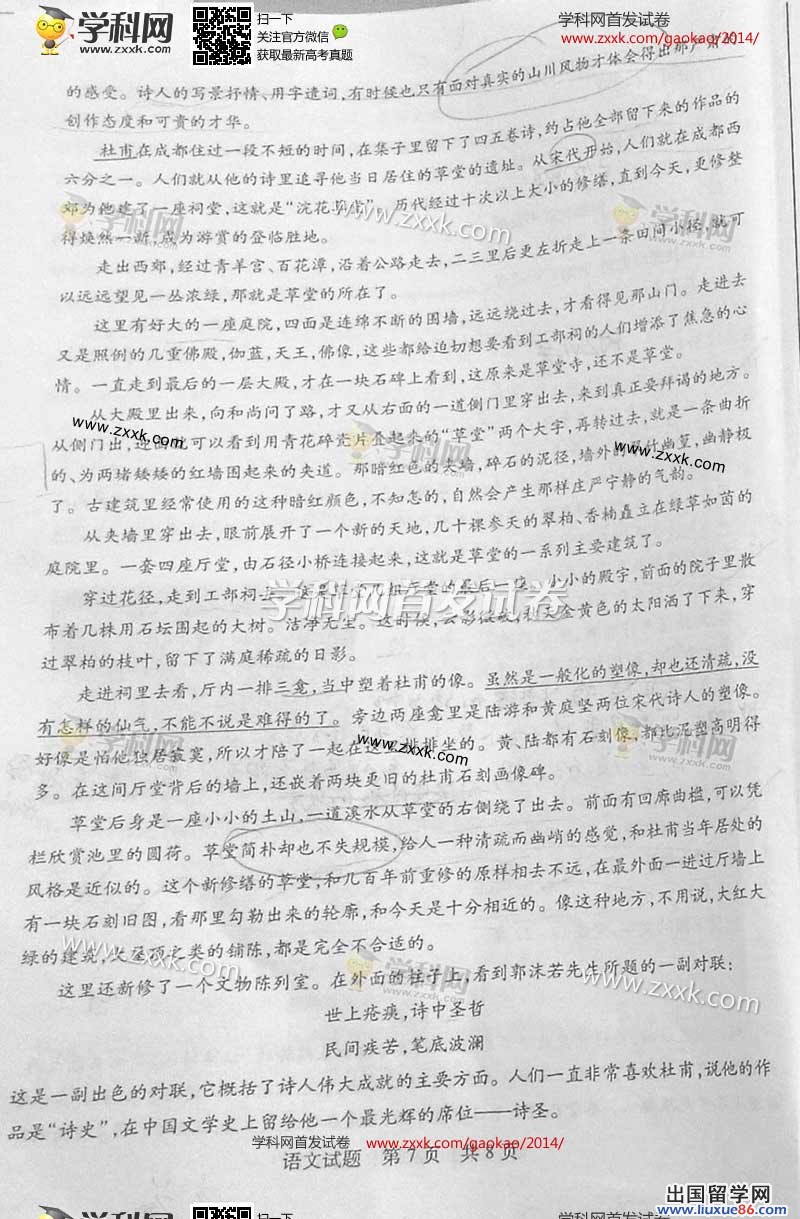 学科网
www.zxxk.com
扫一下
关注官方微信
获取最新高考真题
学科网首发试卷
www.zxxk.com/gaokao/2014/
的感受。诗人的写景抒情、用字遣词,有时候也只有面对真实的山川风物才体会得出那
创作态度和可贵的才华。
杜甫在成都住过一段不短的时间,在集子里留下了四五卷诗,约占他全部留下来的作品的
六分之一。人们就从他的诗里追寻他当日居住的草堂的遗址。从宋代开始,人们就在成都西
郊为他建了一座祠堂,这就是“浣花草堂”。历代经过十次以上大小的修缮,直到今天,更修整
得焕然一新,成为游赏的登临胜地。
走出西郊,经过青羊宫、百花潭,沿着公路走去,二三里后更左折走上一条田间小径,就可
以远远望见一丛浓绿,那就是草堂的所在了。
这里有好大的一座庭院,四面是连绵不断的围墙,远远绕过去,才看得见那山门。走进去
又是照例的几重佛殿,伽蓝,天王,佛像,这些都给迫切想要看到工部祠的人们增添了焦急的心
情。一直走到最后的一层大殿,才在一块石碑上看到,这原来是草堂寺,还不是草堂。
从大殿里出来,向和尚问了路,才又从右面的一道侧门里穿出去,来到真正要拜谒的地方。
从侧门出,迎面就可以看到用青花碎瓷片叠起来的“草堂”两个大字,再转过去,就是一条曲折
的、为两堵矮矮的红墙围起来的夹道。那暗红色的夹墙,碎石的泥径,墙外的翠竹幽篁,幽静极
了。古建筑里经常使用的这种暗红颜色,不知怎的,自然会产生那样庄严宁静的气韵。
从夹墙里穿出去,眼前展开了一个新的天地,几十棵参天的翠柏、香楠矗立在绿草如茵的
庭院里。一套四座厅堂,由石径小桥连接起来,这就是草堂的一系列主要建筑了。
穿过花径,走到工部祠去。这是排列的四座厅堂的最后一座。小小的殿宇,前面的院子里散
布着几株用石坛围起的大树。洁净无尘。这时候,云影微破,初夏金黄色的太阳洒了下来,穿
过翠柏的枝叶,留下了满庭稀疏的日影。
走进祠里去看,厅内一排三龛,当中塑着杜甫的像。虽然是一般化的塑像,却也还清疏,没
有怎样的仙气,不能不说是难得的了。旁边两座龛里是陆游和黄庭坚两位宋代诗人的塑像。
好像是怕他独居寂寞,所以才陪了一起在这里排排坐的。黄、陆都有石刻像,都比泥塑高明得
多。在这间厅堂背后的墙上,还嵌着两块更旧的杜甫石刻画像碑。
草堂后身是一座小小的土山,一道溪水从草堂的右侧绕了出去。前面有回廊曲槛,可以凭
栏欣赏池里的圆荷。草堂简朴却也不失规模,给人一种清疏而幽峭的感觉,和杜甫当年居处的
风格是近似的。这个新修缮的草堂,和几百年前重修的原样相去不远,在最外面一进过厅墙上
有一块石刻旧图,看那里勾勒出来的轮廓,和今天是十分相近的。像这种地方,不用说,大红大
绿的建筑,大屋顶之类的铺陈,都是完全不合适的。
这里还新修了一个文物陈列室。在外面的柱子上,看到郭沫若先生所题的一副对联:
世上疮痍,诗中圣哲
民间疾苦,笔底波澜
这是一副出色的对联,它概括了诗人伟大成就的主要方面。人们一直非常喜欢杜甫,说他的作
品是“诗史”,在中国文学史上留给他一个最光辉的席位——诗圣。
学科网首发试卷
www.zxxk.com/gaokao/2014/
语文试题 第7页 共8页
出国留学网
www.liuxue86.com